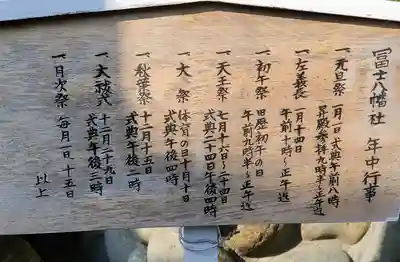 冨士八幡社 年中行事
一、元旦祭 一月一日式典午前八時
昇殿参拝九時半〜正午迄
一、左義長 一月十四日
午前十時〜正午迄
一、初午祭 旧暦初午の日
午前九時半〜正午迄
一、天王祭 七月十六日〜二十四日
式典二十四日午後四時
一、大祭 体育の日十月十日
式典午後四時
一、秋葉祭 十二月十五日
式典午後二時
一、大祓式 十二月二十九日
式典午後二時
一、月次祭 毎月一日、十五日
以上